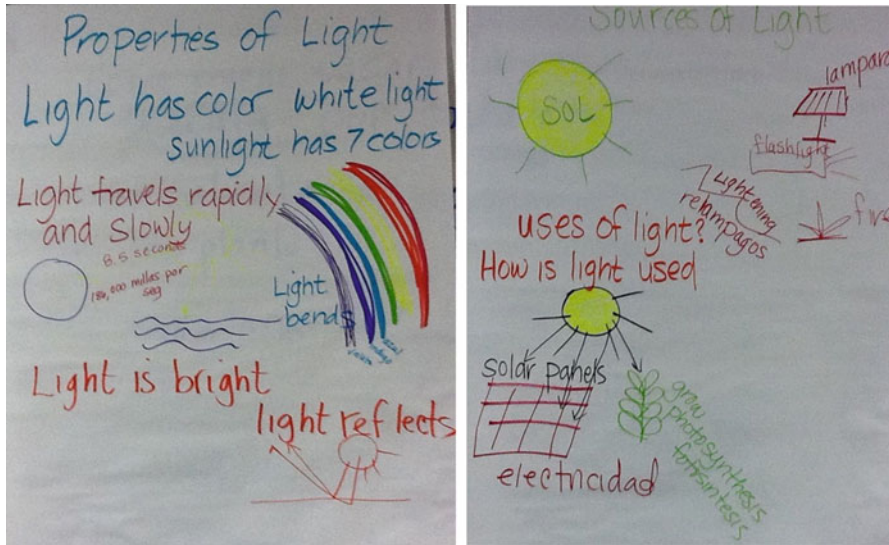 Properties of Light
Light has color white light
sunlight has 7 colors
Light travels rapidly
and slowly
8.5 seconds
186,000 millas por
seg
Light
bends
Light is bright
light reflects
Sources of Light
SOL
lampara
flashlight
Lightening
relampagos
uses of light?
How is light used
solar panels
electricidad
grow
photosynthesis
fotosintesis